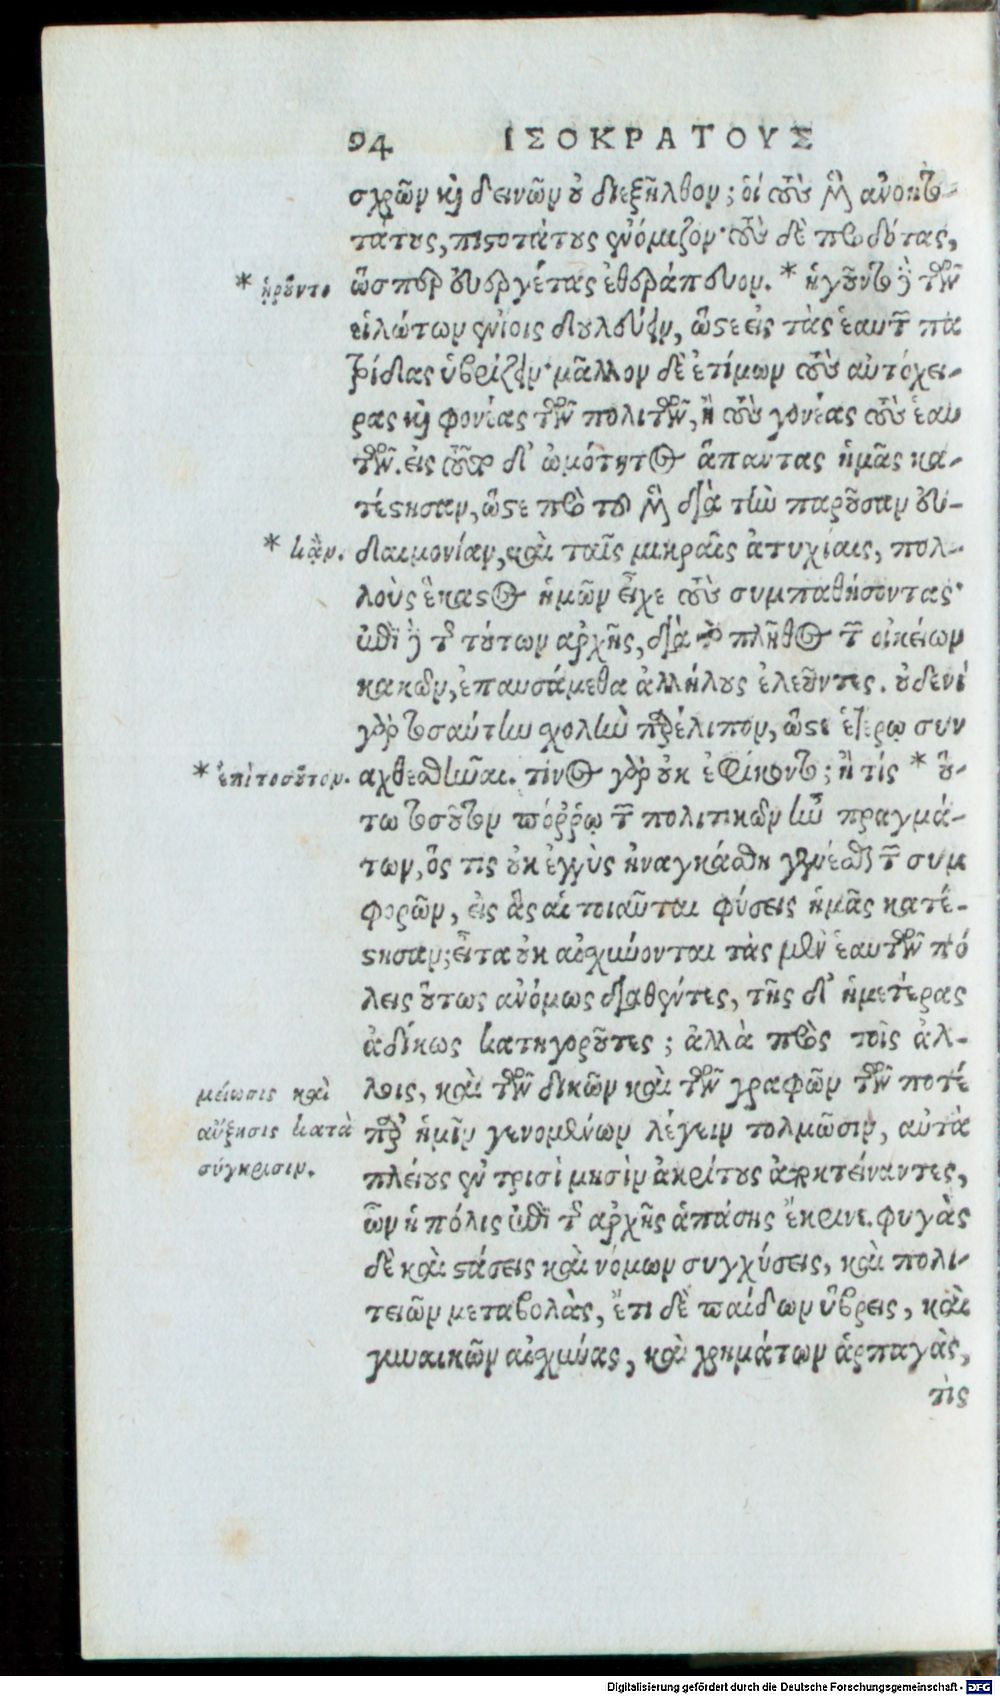 94 ΙΣΟΚΡΑΤΟΥΣ
σχρῶν καὶ δεινῶν οὐ διεξῆλθον; οἱ τοὺς μὲν ἀνομω-
τάτους, πιστοτάτους ἐνόμιζον· τοὺς δὲ προδότας,
* ᾑροῦντο
ὥσπερ εὐεργέτας ἐθεράπευον. * ἡγοῦντο δὲ τῶν
εἱλώτων ἐνίοις δουλεύειν, ὥστε εἰς τὰς ἑαυτῶν πα
τρίδας ὑβρίζειν· μᾶλλον δὲ ἐτίμων τοὺς αὐτόχει-
ρας καὶ φονέας τῶν πολιτῶν, ἢ τοὺς γονέας τοὺς ἑαυ
τῶν. εἰς τοῦτο δ' ὠμότητος ἅπαντας ἡμᾶς κα-
τέστησαν, ὥστε πρὸ τοῦ μὲν διὰ τὴν παροῦσαν εὐ-
* κἀν.
δαιμονίαν, καὶ ταῖς μικραῖς ἀτυχίαις, πολ-
λοὺς ἕκαστος ἡμῶν εἶχε τοὺς συμπαθήσοντας·
ἐπὶ δὲ τῆς τούτων ἀρχῆς, διὰ τὸ πλῆθος τῶν οἰκείων
κακῶν, ἐπαυσάμεθα ἀλλήλους ἐλεοῦντες. οὐδενὶ
γὰρ τοσαύτην σχολὴν παρέλιπον, ὥστε ἑτέρῳ συν
* ἐπὶ τοσοῦτον.
αχθεσθῆναι. τίνος γὰρ οὐκ ἐφίκοντο; ἢ τίς * οὕ-
τω τοσοῦτον πόῤῥω τῶν πολιτικῶν ἦν πραγμά-
των, ὅς τις οὐκ ἐγγὺς ἠναγκάσθη γενέσθαι τῶν συμ
φορῶν, εἰς ἃς αἱ τοιαῦται φύσεις ἡμᾶς κατέ-
στησαν; εἶτα οὐκ αἰσχύνονται τὰς μὲν ἑαυτῶν πό
λεις οὕτως ἀνόμως διαθέντες, τῆς δ' ἡμετέρας
ἀδίκως κατηγοροῦντες; ἀλλὰ πρὸς τοῖς ἄλ-
μείωσις καὶ
αὔξησις κατὰ
σύγκρισιν.
λοις, καὶ τῶν δικῶν καὶ τῶν γραφῶν τῶν ποτέ
παρ' ἡμῖν γενομένων λέγειν τολμῶσιν, αὐτὰ
πλείους ἐν τρισὶ μησὶν ἀκρίτους ἀποκτείναντες,
ὧν ἡ πόλις ἐπὶ τῆς ἀρχῆς ἁπάσης ἔκρινε. φυγὰς
δὲ καὶ στάσεις καὶ νόμων συγχύσεις, καὶ πολι-
τειῶν μεταβολὰς, ἔτι δὲ παίδων ὕβρεις, καὶ
γυναικῶν αἰσχύνας, καὶ χρημάτων ἁρπαγὰς,
τὶς
Digitalisierung gefördert durch die Deutsche Forschungsgemeinschaft - DFG